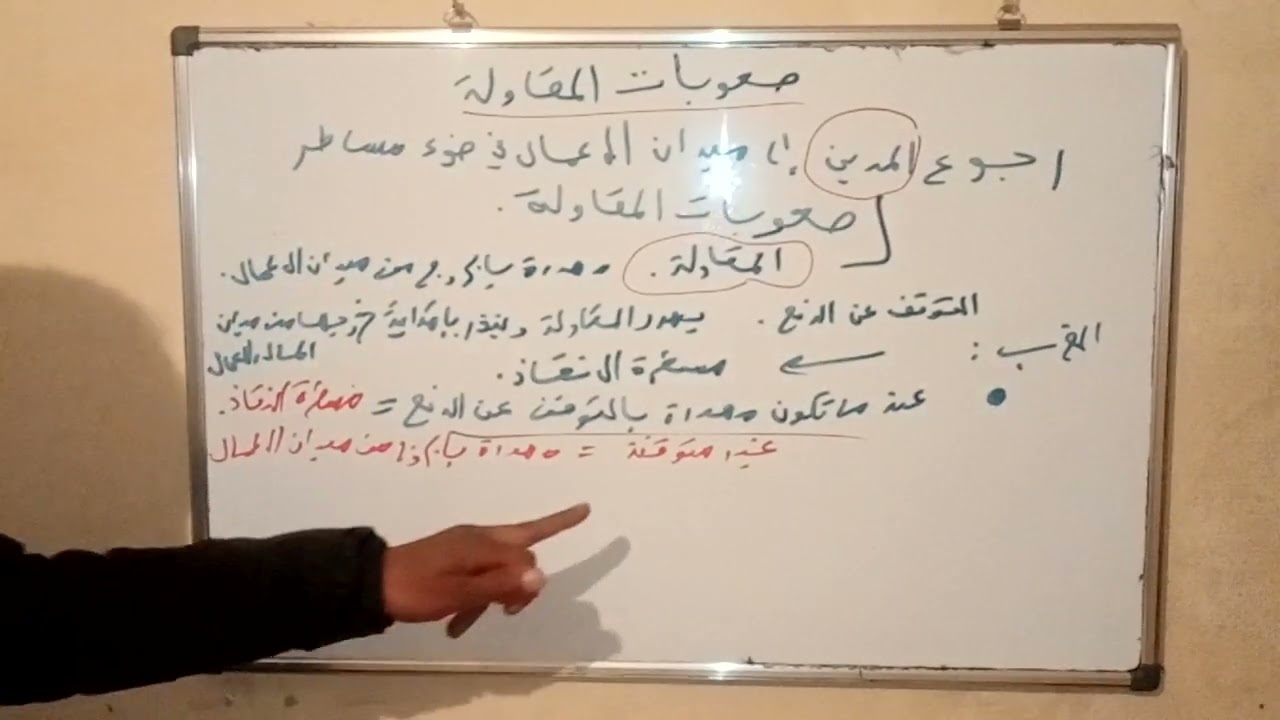 صعوبات المقاولة
رجوع المدين إلى ميدان الأعمال في ضوء مساطر
صعوبات المقاولة.
المقاولة. مهددة بالخروج من ميدان الاعمال.
المتوقف عن الدفع. يهدد المقاولة وينذر بإمكانية خروجها من ميدان
المال والأعمال
: مسطرة الانقاذ.
عند ما تكون مهداة بالتوقف عن الدفع = مسطرة الانقاذ.
غير متوقفة = مهداة بالخروج من ميدان الاعمال